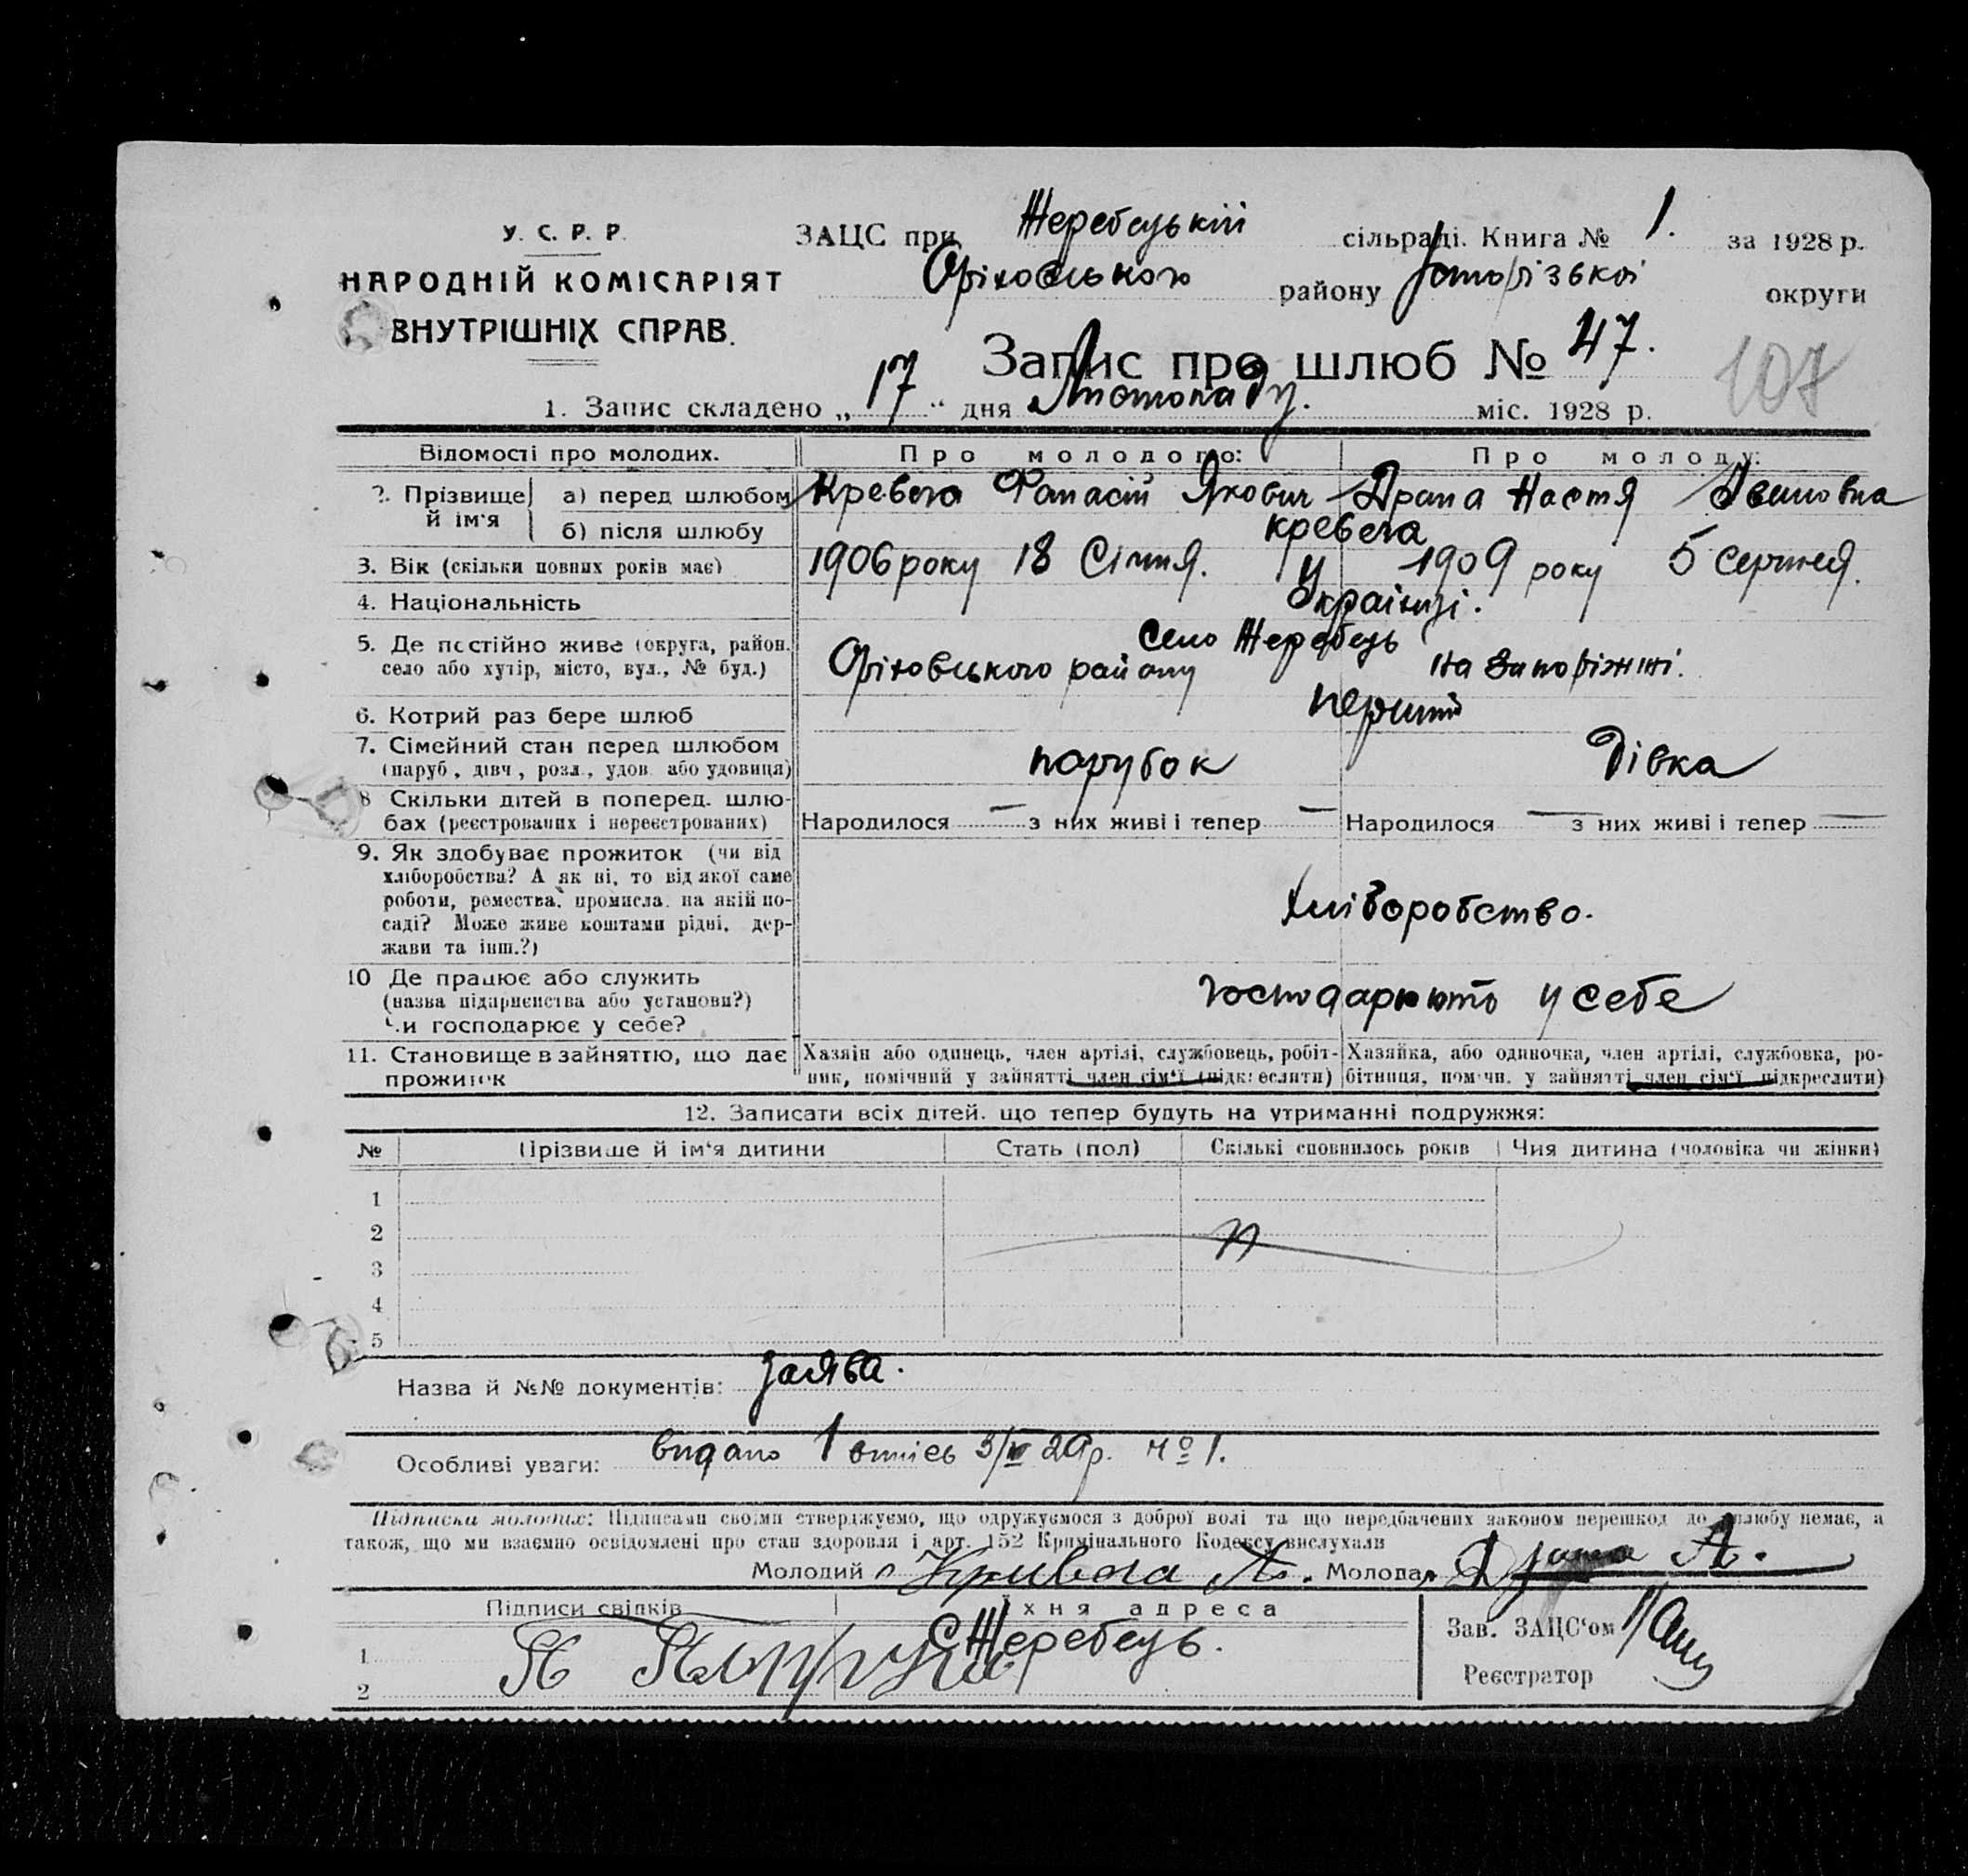 У. С. Р. Р.
НАРОДНІЙ КОМІСАРІЯТ
ВНУТРІШНІХ СПРАВ.
ЗАЦС при Жеребецькій сільраді. Книга № 1. за 1928 р.
Оріховського району Запорізької округи
Запис про шлюб № 47.
107
1. Запис складено „ 17 “ дня Листопаду. міс. 1928 р.
Відомості про молодих. Про молодого: Про молоду:
2. Прізвище й ім'я а) перед шлюбом Кревега Фанасій Якович Драпа Настя Івановна
б) після шлюбу Кревега
3. Вік (скільки повних років має) 1906 року 18 Січня. 1909 року 5 Серпня.
4. Національність Українці.
5. Де постійно живе (округа, район, село Жеребець
село або хутір, місто, вул., № буд.) Оріховського району на Запоріжжі.
6. Котрий раз бере шлюб перший
7. Сімейний стан перед шлюбом
(паруб., дівч., розл., удов. або удовиця) парубок Дівка
8 Скільки дітей в поперед. шлю-
бах (реєстрованих і нереєстрованих) Народилося — з них живі і тепер — Народилося — з них живі і тепер —
9. Як здобуває прожиток (чи від
хліборобства? А як ні, то від якої саме
роботи, ремества, промисла, на якій по-
саді? Може живе коштами рідні, дер-
жави та інш.?)
хліборобство.
10 Де працює або служить
(назва підприємства або установи?)
Чи господарює у себе?
господарюють у себе
11. Становище в зайняттю, що дає
прожиток
Хазяїн або одинець, член артілі, службовець, робіт-
ник, помічний у зайнятті член сім'ї (підкреслити)
Хазяйка, або одиночка, член артілі, службовка, ро-
бітниця, помічн. у зайнятті член сім'ї підкреслити)
12. Записати всіх дітей, що тепер будуть на утриманні подружжя:
№ Прізвище й ім'я дитини Стать (пол) Скількі сповнилось років Чия дитина (чоловіка чи жінки)
1
2
3
4
5
Назва й №№ документів: заява.
Особливі уваги: видано 1 29 р. № 1.
Підписки молодих: Підписами своїми стверджуємо, що одружуємося з доброї волі та що передбачених законом перешкод до шлюбу немає, а
також, що ми взаємно освідомлені про стан здоровля і арт. 152 Кримінального Кодексу вислухали
Молодий Кривега А. Молода Драпа А.
Підписи свідків Їхня адреса
1 С Жеребець.
2
Зав. ЗАЦС'ом
Реєстратор